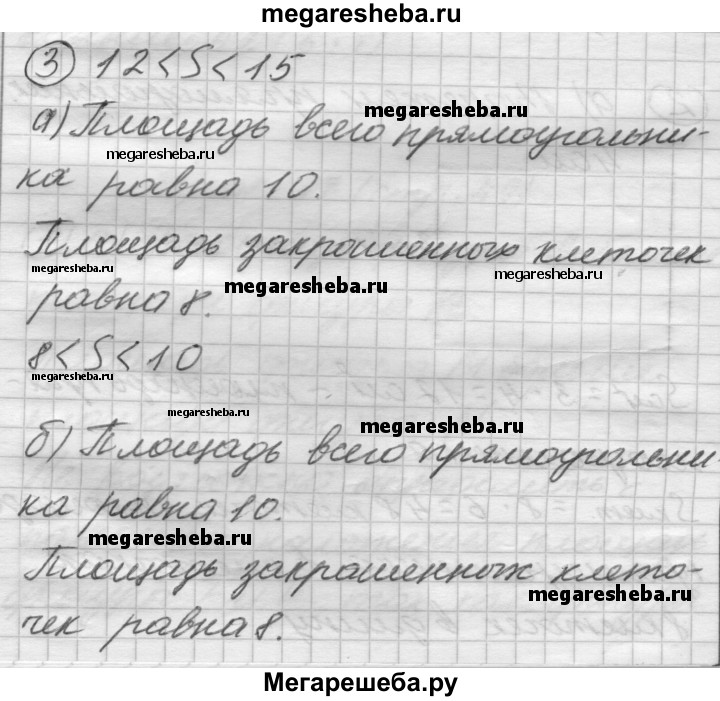 megaresheba.ru
③ 12<S<15
megaresheba.ru
а) Площадь всего прямоугольни-
megaresheba.ru
ка равна 10.
Площадь закрашенных клеточек
megaresheba.ru
megaresheba.ru
megaresheba.ru
равна 8.
8<S<10
megaresheba.ru
megaresheba.ru
megaresheba.ru
б) Площадь всего прямоугольни-
ка равна 10.
megaresheba.ru
Площадь закрашенных клето-
megaresheba.ru
чек равна 8.
Мегарешеба.ру